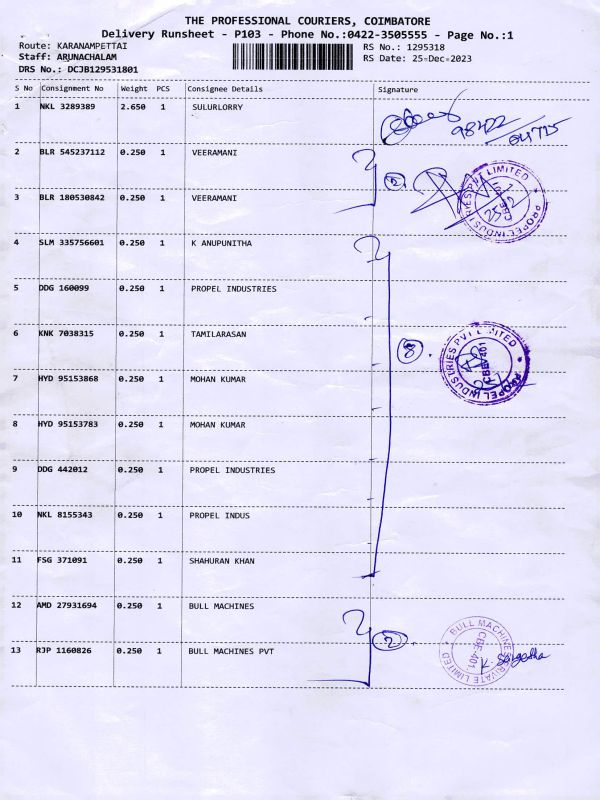 THE PROFESSIONAL COURIERS, COIMBATORE
Delivery Runsheet - P103 - Phone No.:0422-3505555 - Page No.:1
Route: KARANAMPETTAI RS No.: 1295318
Staff: ARUNACHALAM RS Date: 25-Dec-2023
DRS No.: DCJB129531801
S No Consignment No Weight PCS Consignee Details Signature
1 NKL 3289389 2.650 1 SULURLORRY
98422
04715
2 BLR 545237112 0.250 1 VEERAMANI
3 BLR 180530842 0.250 1 VEERAMANI
PROPEL INDUSTRIES PVT LIMITED
4 SLM 335756601 0.250 1 K ANUPUNITHA
5 DDG 160099 0.250 1 PROPEL INDUSTRIES
6 KNK 7038315 0.250 1 TAMILARASAN
8
PROPEL INDUSTRIES PVT LIMITED
CBE-401
7 HYD 95153868 0.250 1 MOHAN KUMAR
8 HYD 95153783 0.250 1 MOHAN KUMAR
9 DDG 442012 0.250 1 PROPEL INDUSTRIES
10 NKL 8155343 0.250 1 PROPEL INDUS
11 FSG 371091 0.250 1 SHAHURAN KHAN
12 AMD 27931694 0.250 1 BULL MACHINES
2
BULL MACHINES PRIVATE LIMITED
CBE-401
13 RJP 1160826 0.250 1 BULL MACHINES PVT